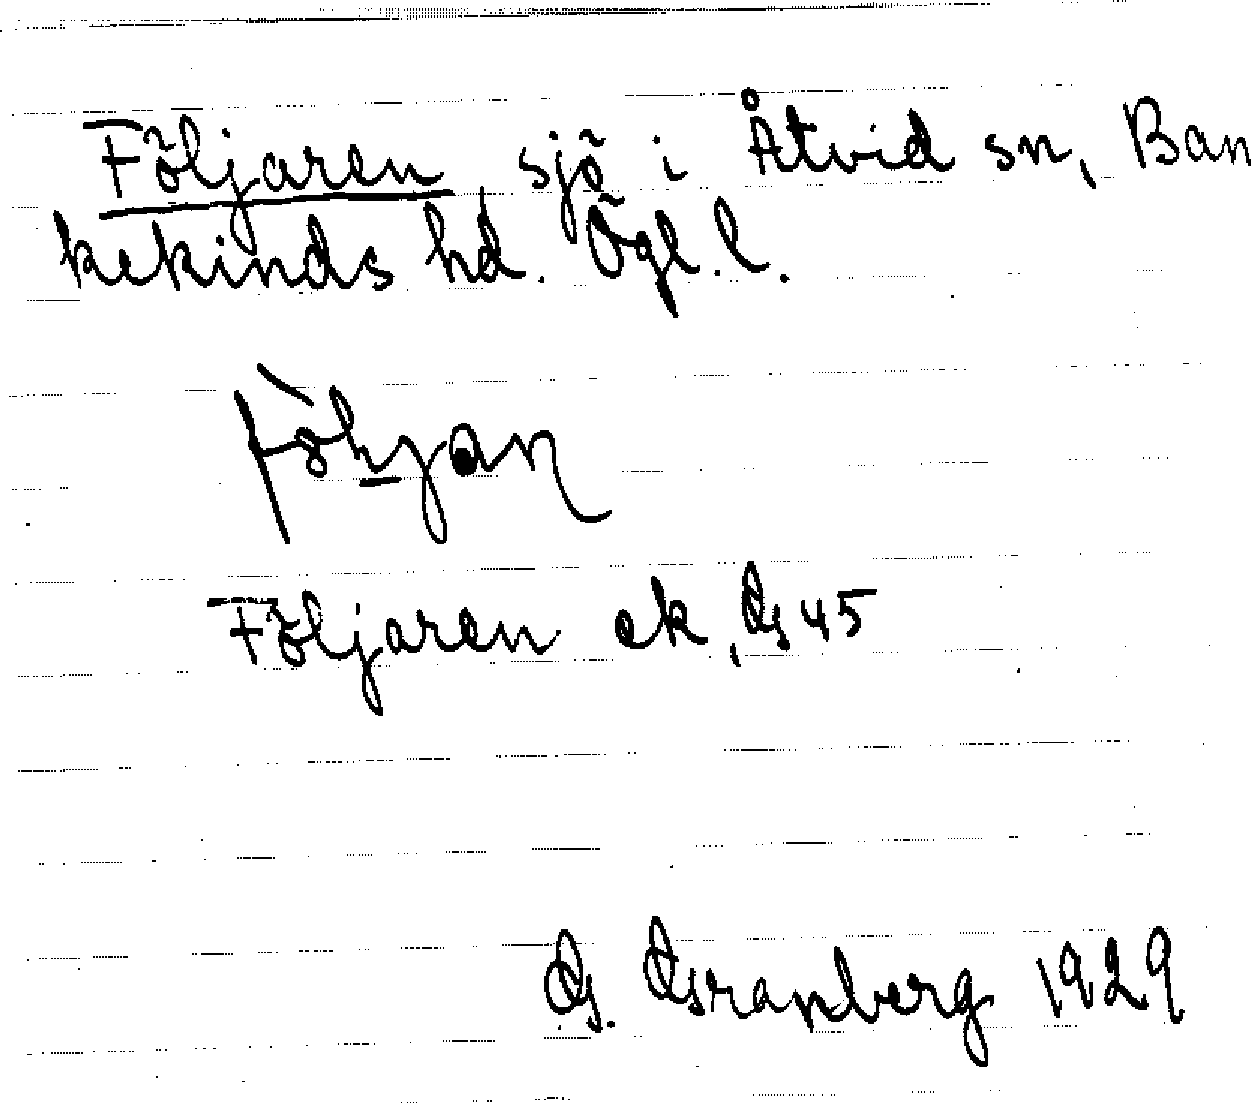 Följaren sjö i Åtvid sn, Ban
kekinds hd. Ögl. l.
Följaren ek, G 45
G. Granberg 1929